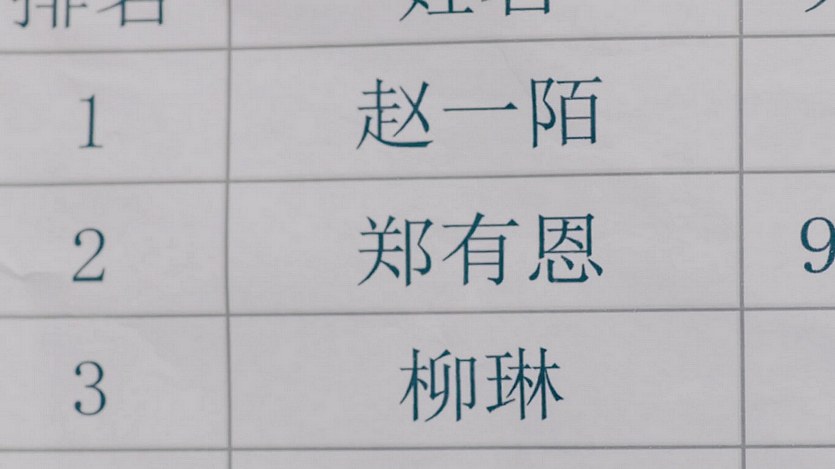 排名 姓名
1 赵一陌
2 郑有恩 9
3 柳琳